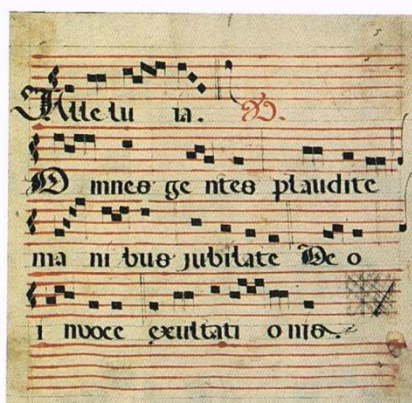 Alle lu ia. V.
O mnes ge ntes plaudite
ma ni bus jubilate De o
i nvoce exultati onis